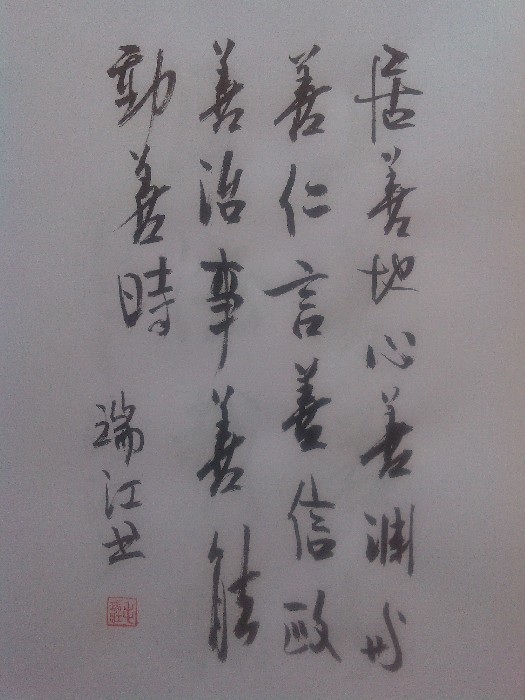 居善地心善渊与
善仁言善信政
善治事善能
動善時
瑞江书